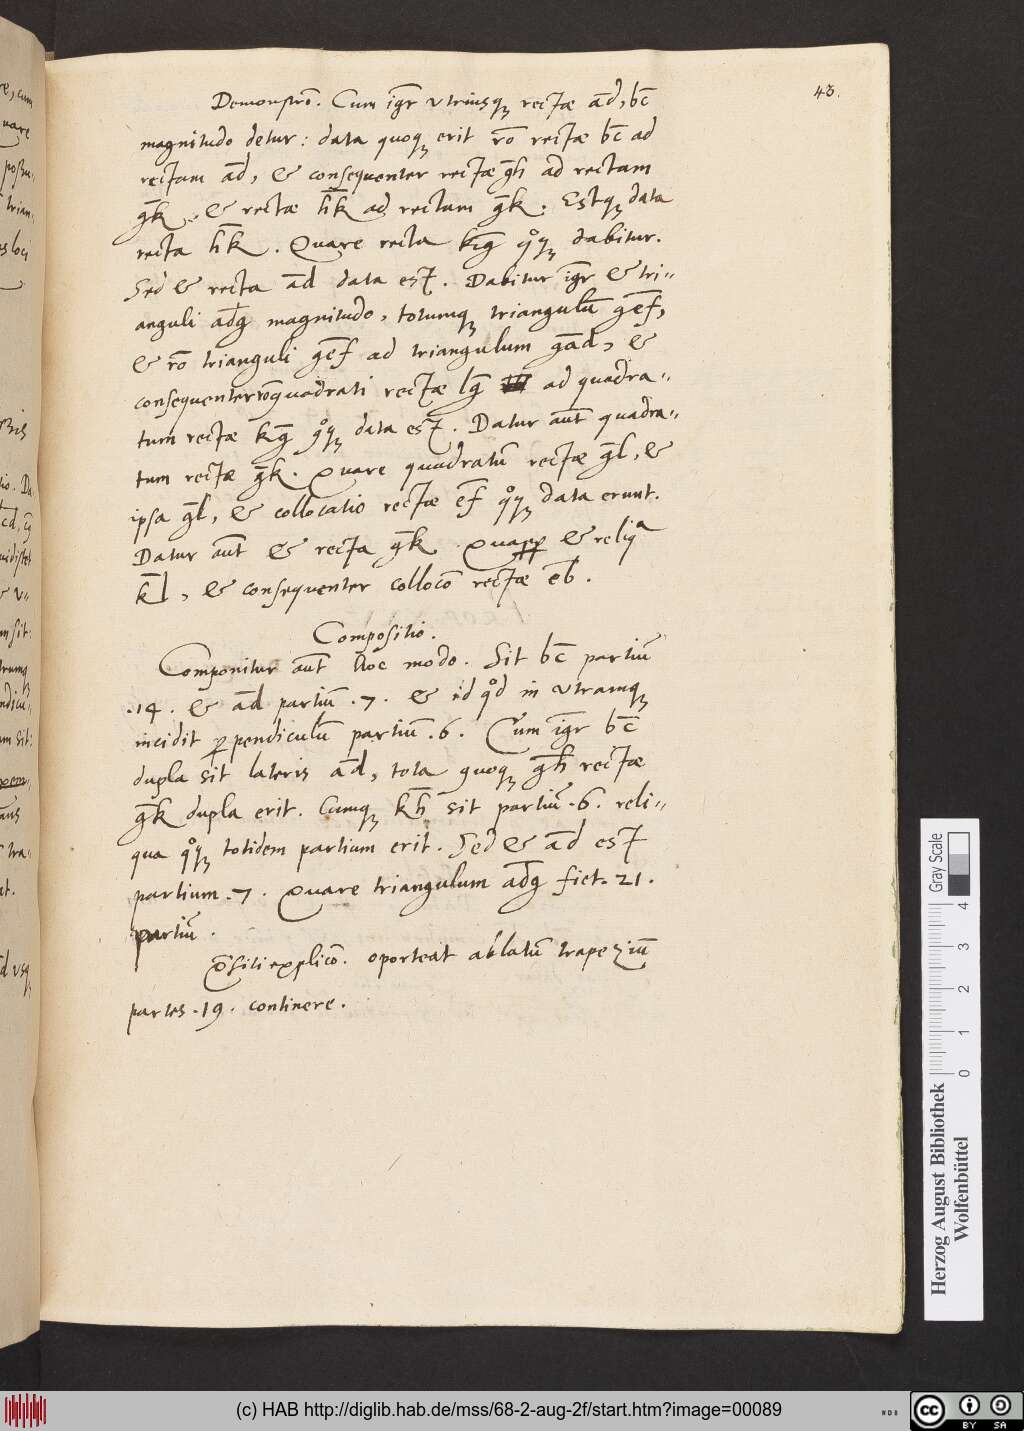 43.
Demonstrō. Cum igr̄ utriusq; rectæ ad, bc
magnitudo detur: data quoq; erit rō rectæ bc ad
rectam ad, & consequenter rectæ gh ad rectam
gk, & rectæ hk ad rectam gk. Estq; data
recta hk. Quare recta kg qoq; dabitur.
Sed & recta ad data est. Dabitur igr̄ & tri-
anguli adg magnitudo, totumq; triangulū gef,
& rō trianguli gef ad triangulum gad, &
consequenter rō quadrati rectæ lg ad quadra-
tum rectæ kg qoq; data est. Datur aūt quadra-
tum rectæ gk. Quare quadratū rectæ gl, &
ipsa gl, & collocatio rectæ ef qoq; data erunt.
Datur aūt & recta gk. & reliqa
kl, & consequenter collocō rectæ eb.
Compositio.
Componitur aūt hoc modo. Sit bc partiū
.14. & ad partiū .7. & id qod in utramq;
incidit ꝑpendiculū partiū .6. Cum igr̄ bc
dupla sit lateris ad, tota quoq; gh rectæ
gk dupla erit. Cumq; kh sit partiū .6. reli-
qua qoq; totidem partium erit. Sed & ad est
partium .7. Quare triangulum adg fiet .21.
partiū.
oporteat ablatū trapeziū
partes .19. continere.
Herzog August Bibliothek
Wolfenbüttel
Gray Scale
0 1 2 3 4
(c) HAB http://diglib.hab.de/mss/68-2-aug-2f/start.htm?image=00089
cc BY SA